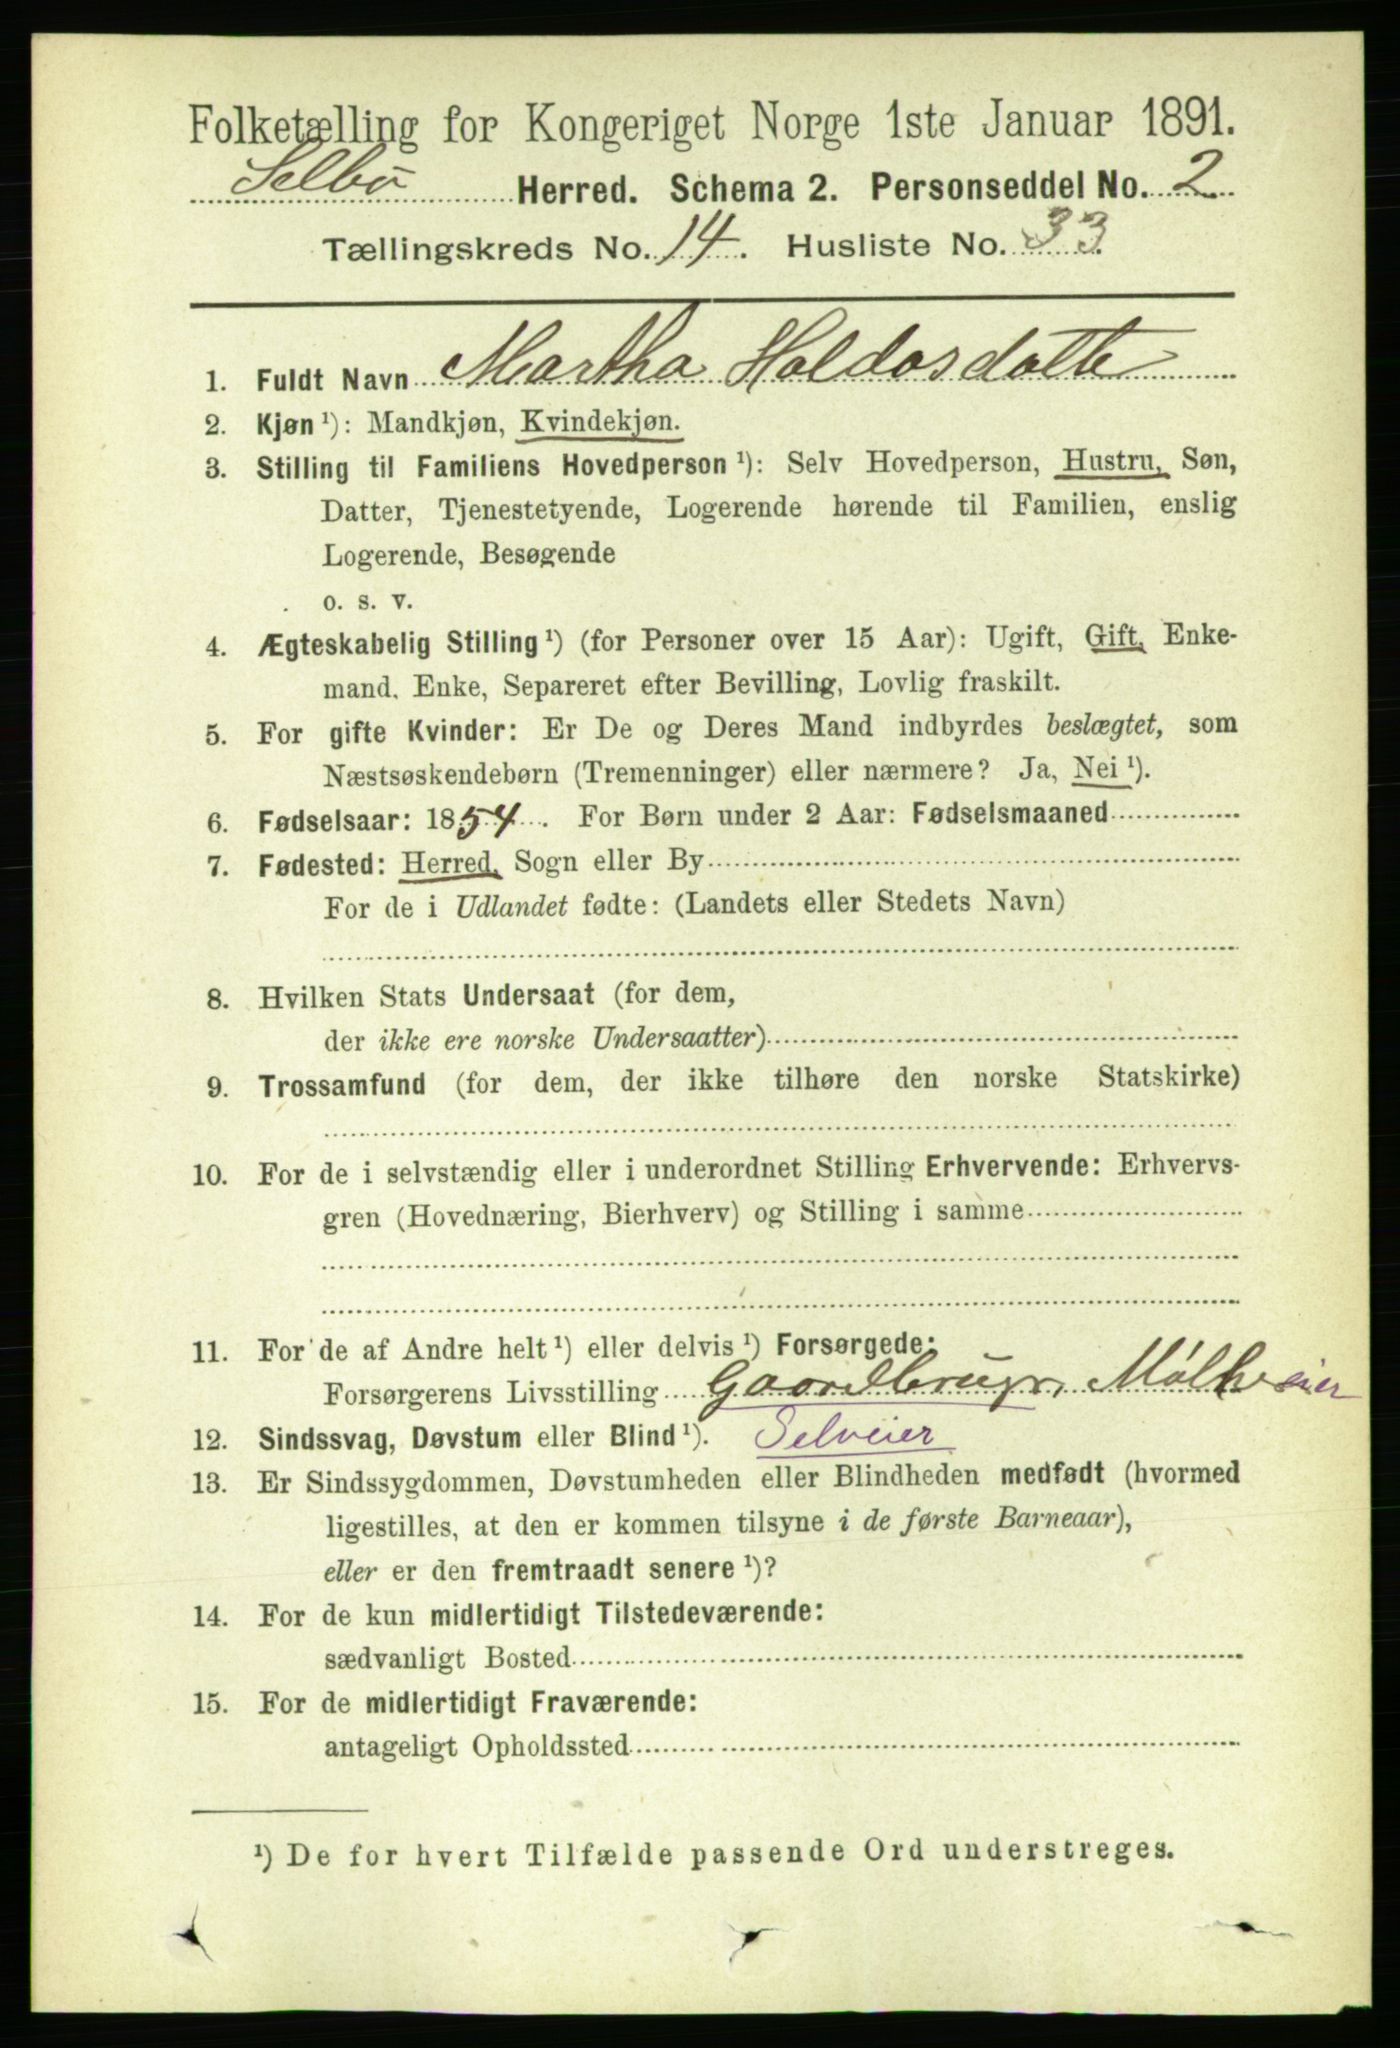 Folketælling for Kongeriget Norge 1ste Januar 1891.
Selbo Herred. Schema 2. Personseddel No. 2
Tællingskreds No. 14. Husliste No. 33
1. Fuldt Navn Martha Haldosdatte
2. Kjøn ¹): Mandkjøn, Kvindekjøn.
3. Stilling til Familiens Hovedperson ¹): Selv Hovedperson, Hustru, Søn,
Datter, Tjenestetyende, Logerende hørende til Familien, enslig
Logerende, Besøgende
o. s. v.
4. Ægteskabelig Stilling ¹) (for Personer over 15 Aar): Ugift, Gift, Enke-
mand, Enke, Separeret efter Bevilling, Lovlig fraskilt.
5. For gifte Kvinder: Er De og Deres Mand indbyrdes beslægtet, som
Næstsøskendebørn (Tremenninger) eller nærmere? Ja, Nei ¹).
6. Fødselsaar: 1854. For Børn under 2 Aar: Fødselsmaaned
7. Fødested: Herred, Sogn eller By
For de i Udlandet fødte: (Landets eller Stedets Navn)
8. Hvilken Stats Undersaat (for dem,
der ikke ere norske Undersaatter)
9. Trossamfund (for dem, der ikke tilhøre den norske Statskirke)
10. For de i selvstændig eller i underordnet Stilling Erhvervende: Erhvervs-
gren (Hovednæring, Bierhverv) og Stilling i samme
11. For de af Andre helt ¹) eller delvis ¹) Forsørgede:
Forsørgerens Livsstilling Gaardbruger,
12. Sindssvag, Døvstum eller Blind ¹). Selveier
13. Er Sindssygdommen, Døvstumheden eller Blindheden medfødt (hvormed
ligestilles, at den er kommen tilsyne i de første Barneaar),
eller er den fremtraadt senere ¹)?
14. For de kun midlertidigt Tilstedeværende:
sædvanligt Bosted
15. For de midlertidigt Fraværende:
antageligt Opholdssted
¹) De for hvert Tilfælde passende Ord understreges.